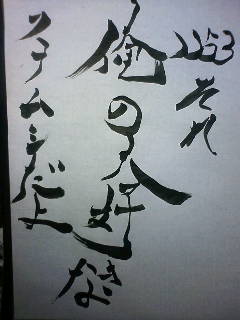 それ
俺の大好きな
フナムシだよ